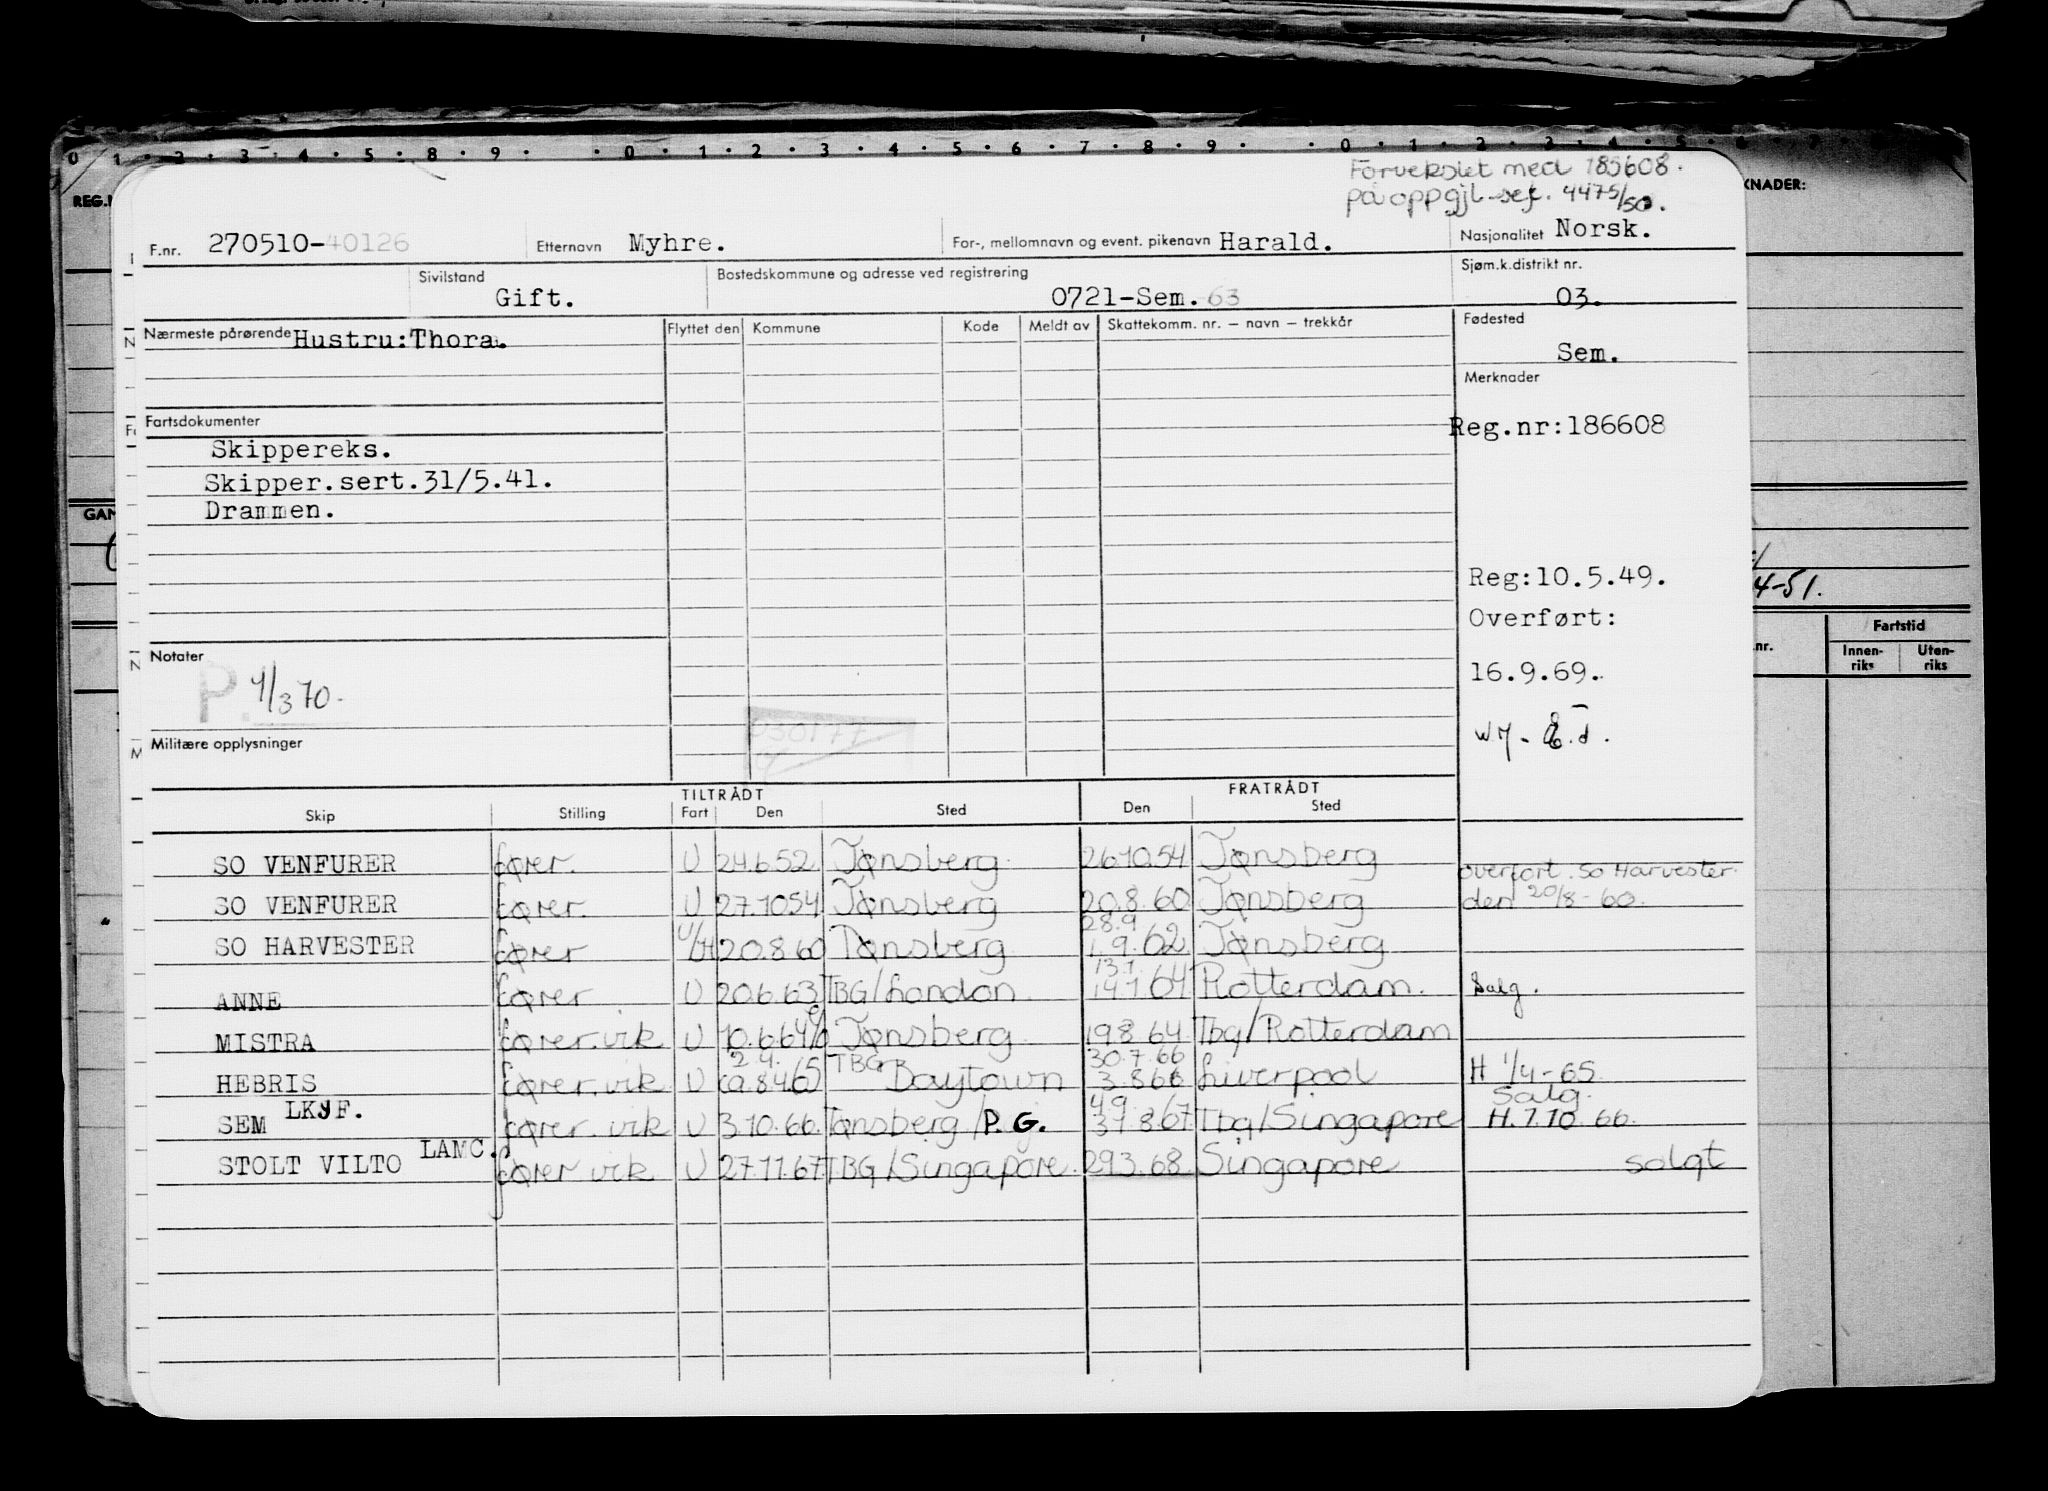 0 1 2 3 4 5 8 9 0 1 2 3 4 5 6 7 8 9 0 1 2 3 4 5 6 7
REG.N
KNADER:
Forvekslet med 185608.
på oppgjl-sef. 4475/50.
F.nr. 270510-40126 Etternavn Myhre. For-, mellomnavn og event. pikenavn Harald. Nasjonalitet Norsk.
Sivilstand Gift. Bostedskommune og adresse ved registrering 0721-Sem. 63 Sjøm.k.distrikt nr. 03.
Nærmeste pårørende Hustru:Thora. Flyttet den Kommune Kode Meldt av Skattekomm. nr. – navn – trekkår Fødested
Sem.
Merknader
Fartsdokumenter
Reg.nr:186608
Skippereks.
Skipper.sert.31/5.41.
Drammen.
GAN
Reg:10.5.49.
4-51.
Overført:
Fartstid
Innen-riks Uten-riks
nr.
Notater
P. 1/3 70.
16.9.69.
030177
Militære opplysninger
TILTRÅDT FRATRÅDT
Skip Stilling Fart Den Sted Den Sted
SO VENFURER fører. U 24.6.52 Tønsberg 26.10.54 Tønsberg overført. So Harvester
SO VENFURER fører. U 27.10.54 Tønsberg 20.8.60 Tønsberg den 20/8-60.
SO HARVESTER fører U/H 20.8.60 Tønsberg 28.9 1.9.62 Tønsberg
ANNE fører U 20.6.63 TBG/London 13.1. 14.1.64 Rotterdam. Salg.
MISTRA fører.vik U 10.6.64 Tønsberg 19.8.64. Tbg/Rotterdam
HEBRIS fører.vik U 2.4. ca.8.4.65 TBG Baytown 30.7.66 3.8.66 Liverpool H 1/4-65. Salg.
SEM LKYF. fører. vik U 3.10.66. Tønsberg/P.G. 4.9. 31.8.67 Tbg/Singapore H.1.10.66.
STOLT VILTO LAMC. fører vik U 27.11.67 TBG/Singapore. 29.3.68 Singapore solgt